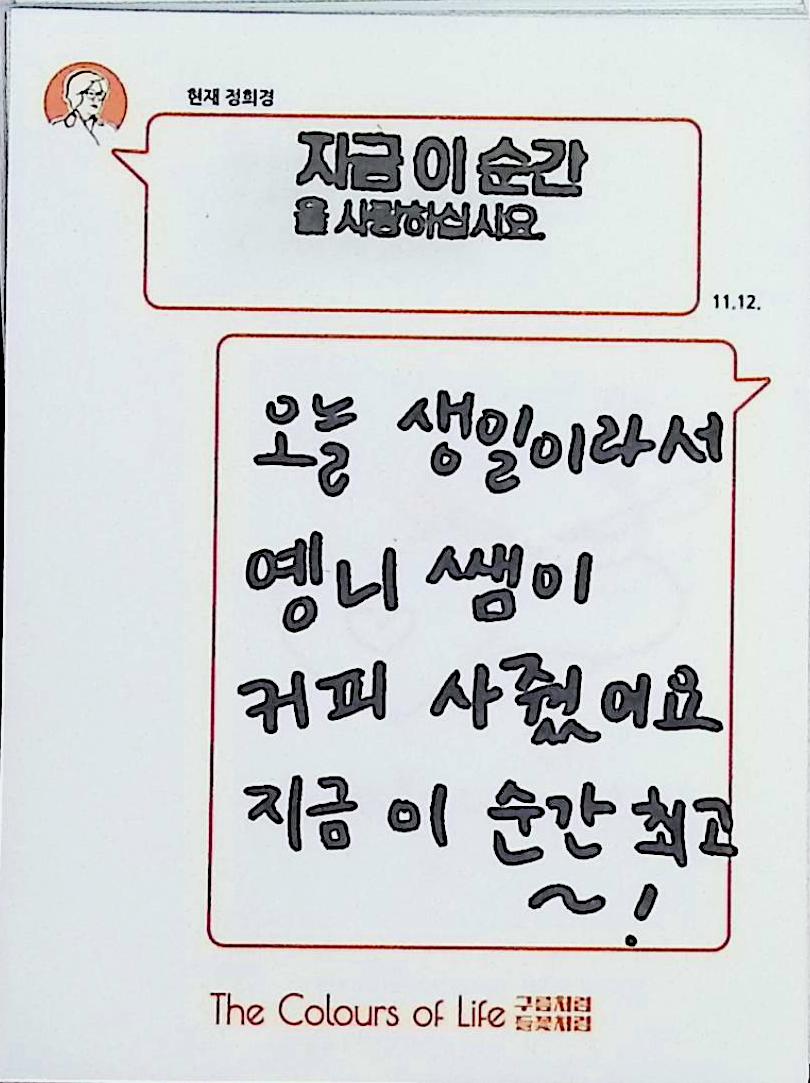 현재 정희경
지금 이 순간
을 사랑하십시요.
11.12.
오늘 생일이라서
옝니 쌤이
커피 사줬어요
지금 이 순간 최고
~!
The Colours of Life 구름처럼
들꽃처럼